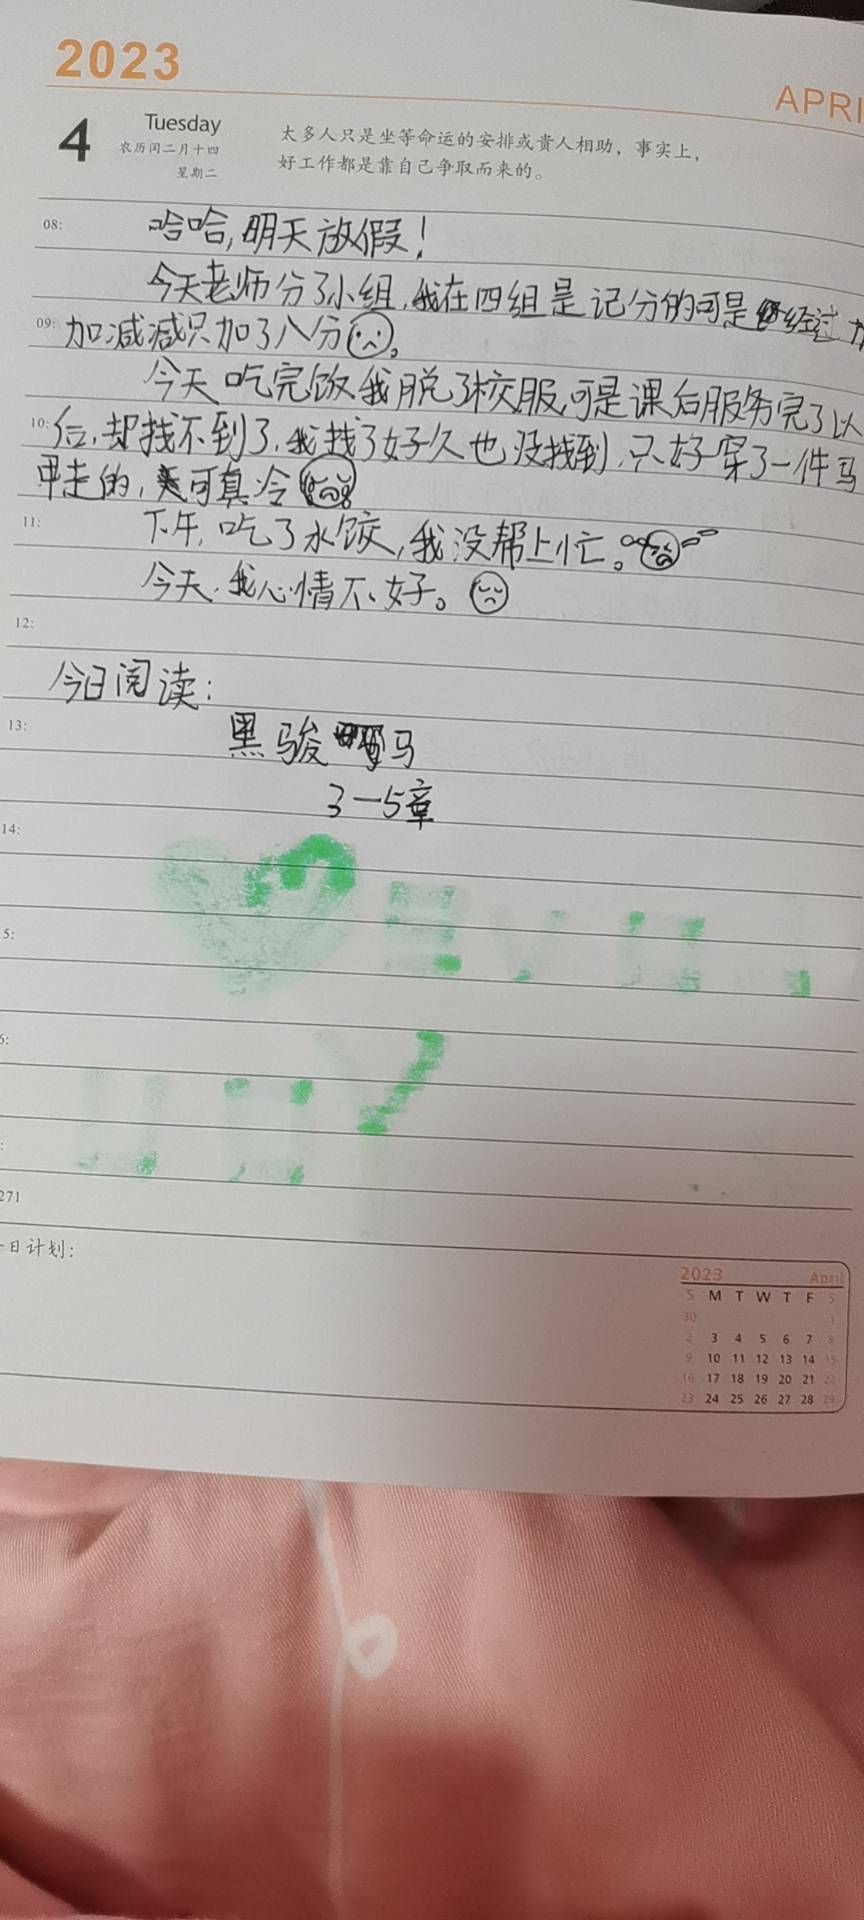 2023
APRI
4
Tuesday
农历闰二月十四
星期二
太多人只是坐等命运的安排或贵人相助，事实上，
好工作都是靠自己争取而来的。
08:
哈哈,明天放假！
今天老师分了小组,我在四组是记分的可是经过加
09:
加减减只加了八分。
今天吃完饭我脱了校服,可是课后服务完了以
10:
后,却找不到了,我找了好久也没找到,只好穿了一件马
甲走的,可真冷
11:
下午,吃了水饺,我没帮上忙。
今天,我心情不好。
12:
今日阅读：
13:
黑骏马
3—5章
14:
5:
6:
:
271
一日计划：
2023 April
S M T W T F S
30 1
2 3 4 5 6 7 8
9 10 11 12 13 14 15
16 17 18 19 20 21 22
23 24 25 26 27 28 29